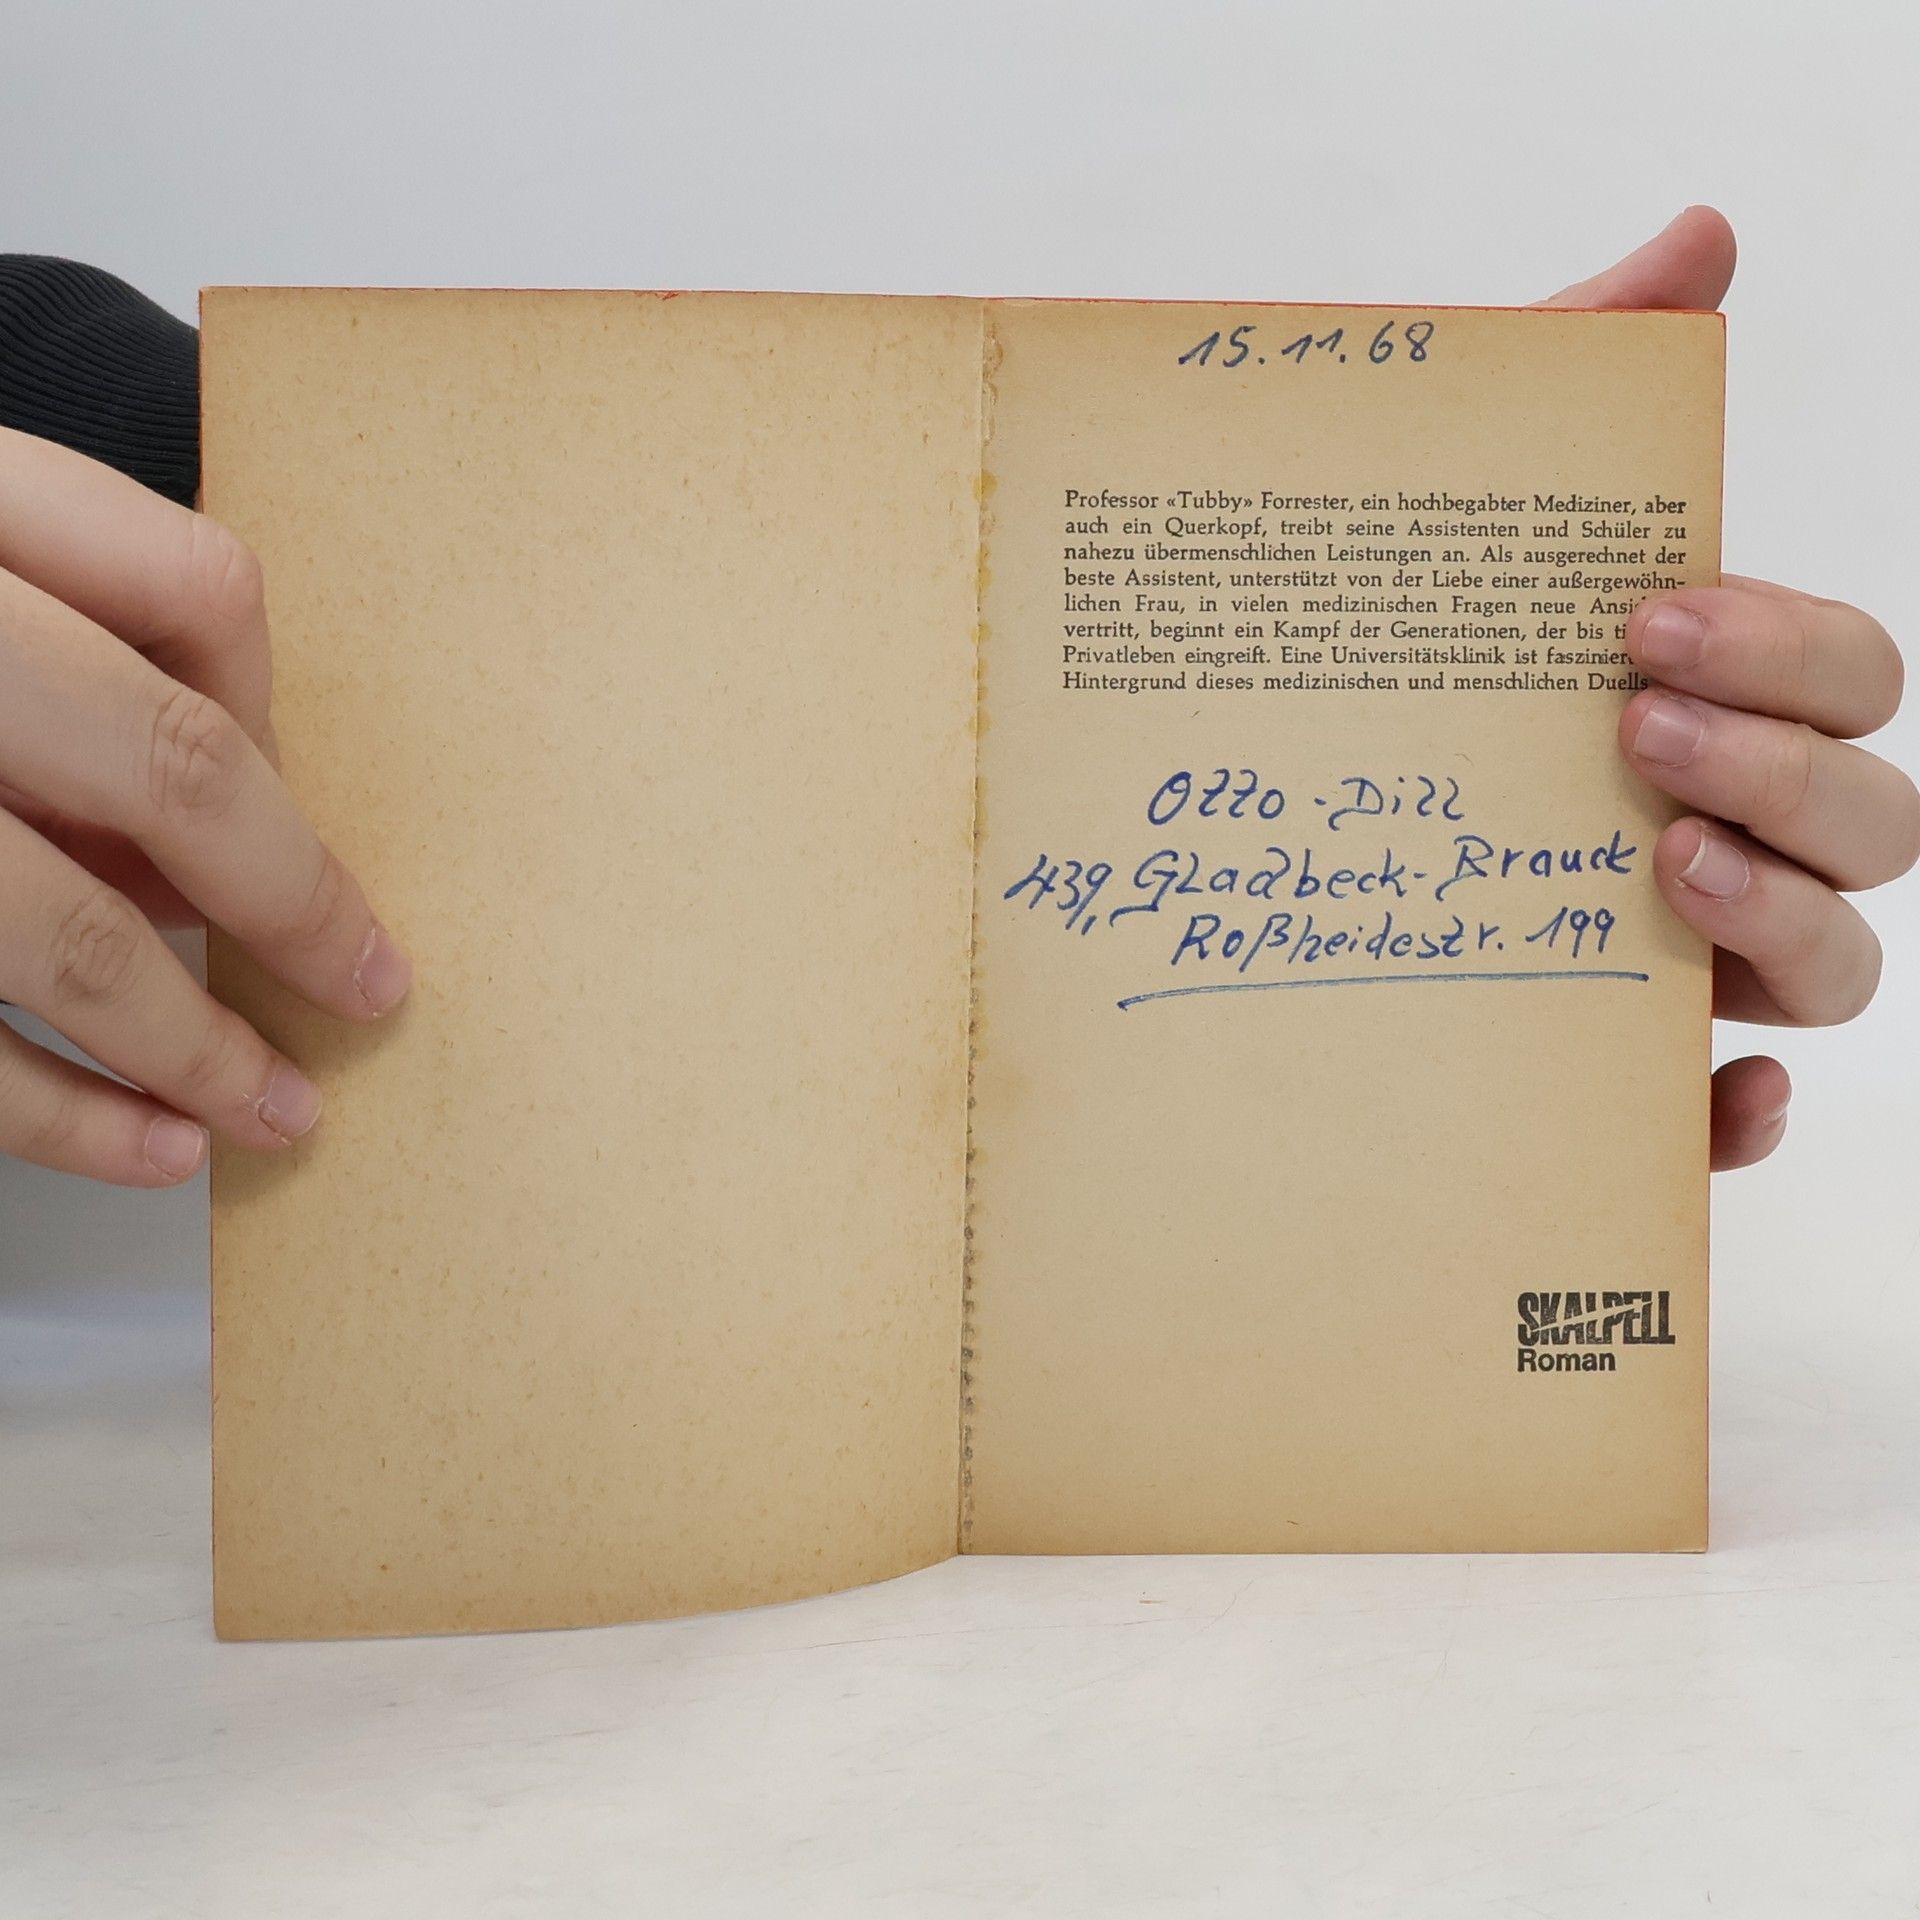 15. 11. 68
Professor «Tubby» Forrester, ein hochbegabter Mediziner, aber
auch ein Querkopf, treibt seine Assistenten und Schüler zu
nahezu übermenschlichen Leistungen an. Als ausgerechnet der
beste Assistent, unterstützt von der Liebe einer außergewöhn-
lichen Frau, in vielen medizinischen Fragen neue
vertritt, beginnt ein Kampf der Generationen, der bis
Privatleben eingreift. Eine Universitätsklinik ist
Hintergrund dieses medizinischen und menschlichen Duells
Otto - Dill
439, Gladbeck-Brauck
Roßheidestr. 199
SKALPELL
Roman